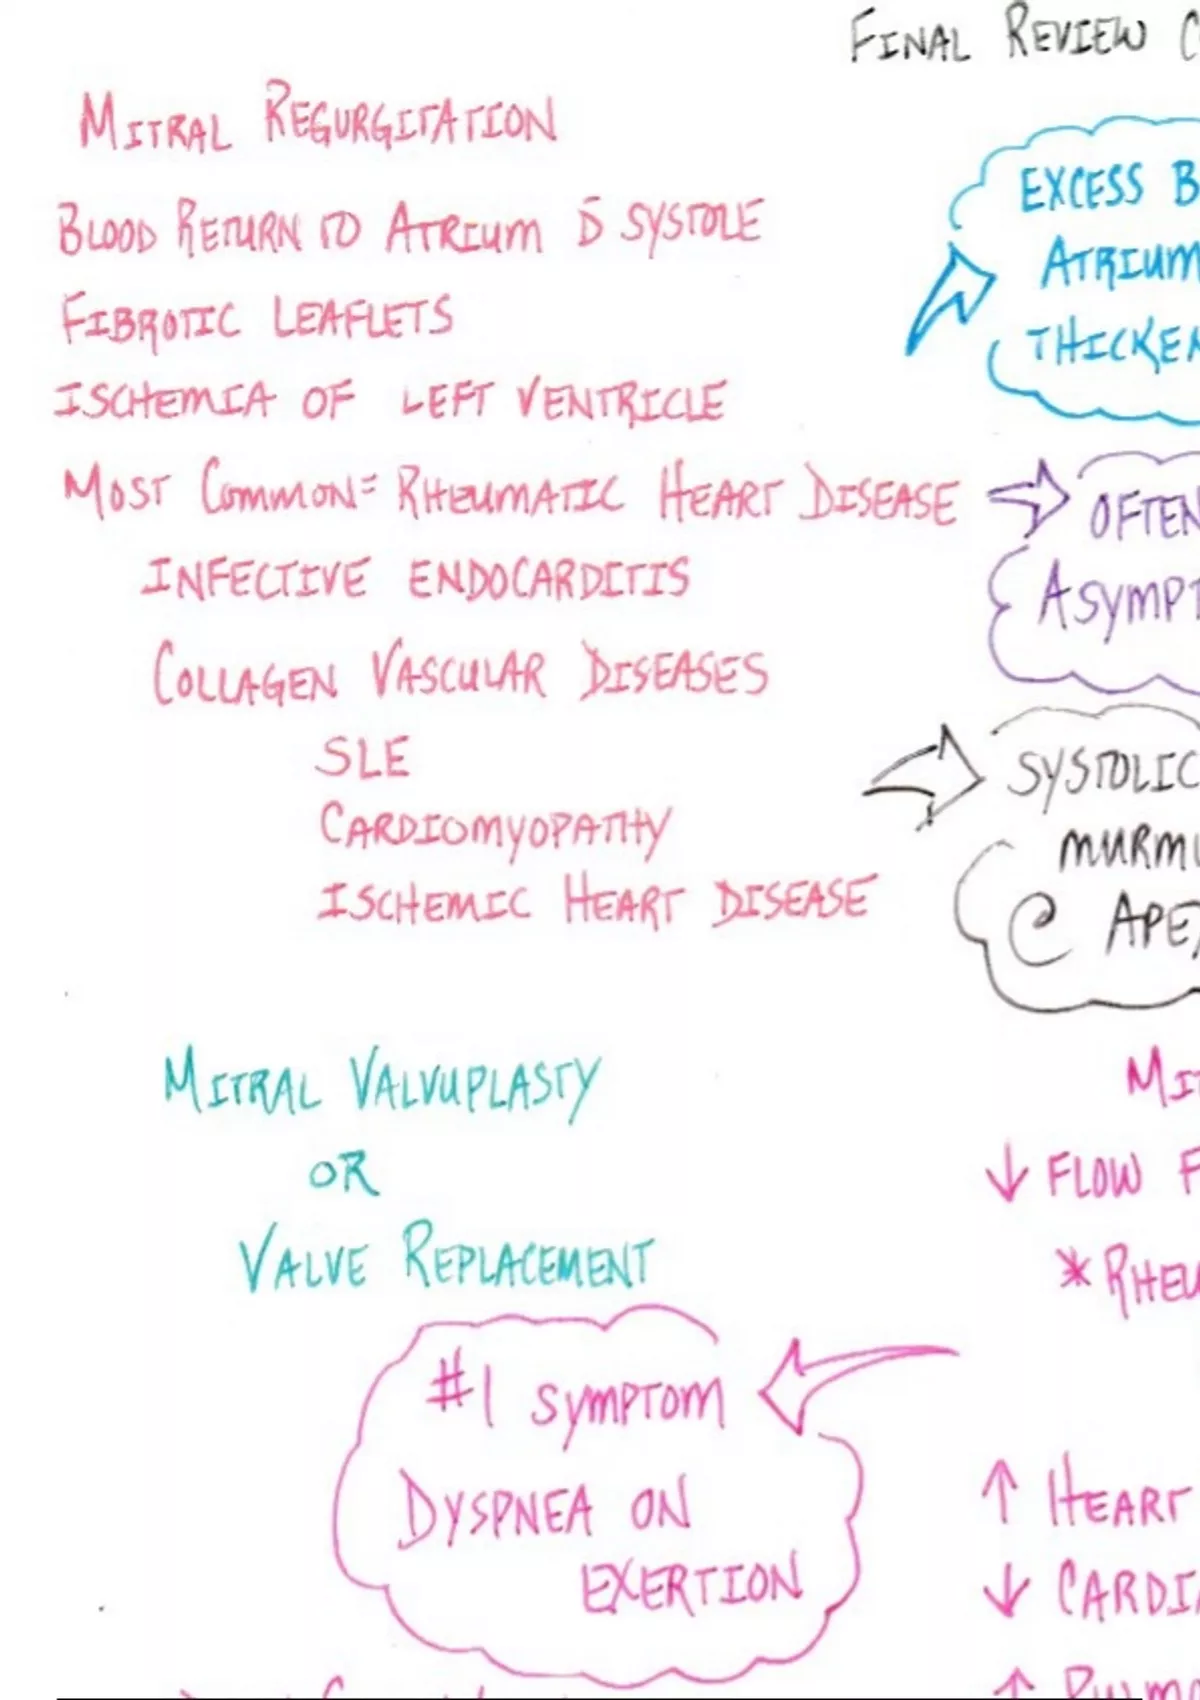 FINAL REVIEW C
MITRAL REGURGITATION
BLOOD RETURN TO ATRIUM S̄ SYSTOLE
FIBROTIC LEAFLETS
ISCHEMIA OF LEFT VENTRICLE
MOST COMMON= RHEUMATIC HEART DISEASE
INFECTIVE ENDOCARDITIS
COLLAGEN VASCULAR DISEASES
SLE
CARDIOMYOPATHY
ISCHEMIC HEART DISEASE
EXCESS B
ATRIUM
THICKEN
OFTEN
ASYMPT
SYSTOLIC
MURMU
@ APEX
MITRAL VALVUPLASTY
OR
VALVE REPLACEMENT
#1 SYMPTOM
DYSPNEA ON
EXERTION
MIT
↓ FLOW F
* RHEU
↑ HEART
↓ CARDIA
↑ PULMO